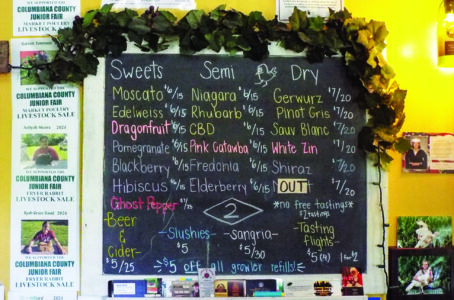 COLUMBIANA COUNTY
JUNIOR FAIR
MARKET POULTRY
LIVESTOCK SALE
COLUMBIANA COUNTY
JUNIOR FAIR
MARKET POULTRY
LIVESTOCK SALE
2024
COLUMBIANA COUNTY
JUNIOR FAIR
FRYER RABBIT
LIVESTOCK SALE
2024
COLUMBIANA COUNTY
JUNIOR FAIR
FRYER RABBIT
LIVESTOCK SALE
Sweets Semi Dry
Moscato $6/15 Niagara $6/15 Gerwurz $7/20
Edelweiss $6/15 Rhubarb $6/15 Pinot Gris $7/20
Dragonfruit $6/15 CBD $6/15 Sauv Blanc $7/20
Pomegranate $6/15 Pink Catawba $6/15 White Zin $7/20
Blackberry $6/15 Fredonia $6/15 Shiraz $7/20
Hibiscus $6/15 Elderberry $6/15 OUT 7/20
Ghost Pepper
2
*no free tastings*
Beer
&
Cider-
$5/25
-Slushies-
$5
-sangria-
$5/30
-Tasting
flights-
$5 (4)
$5 off all growler refills!